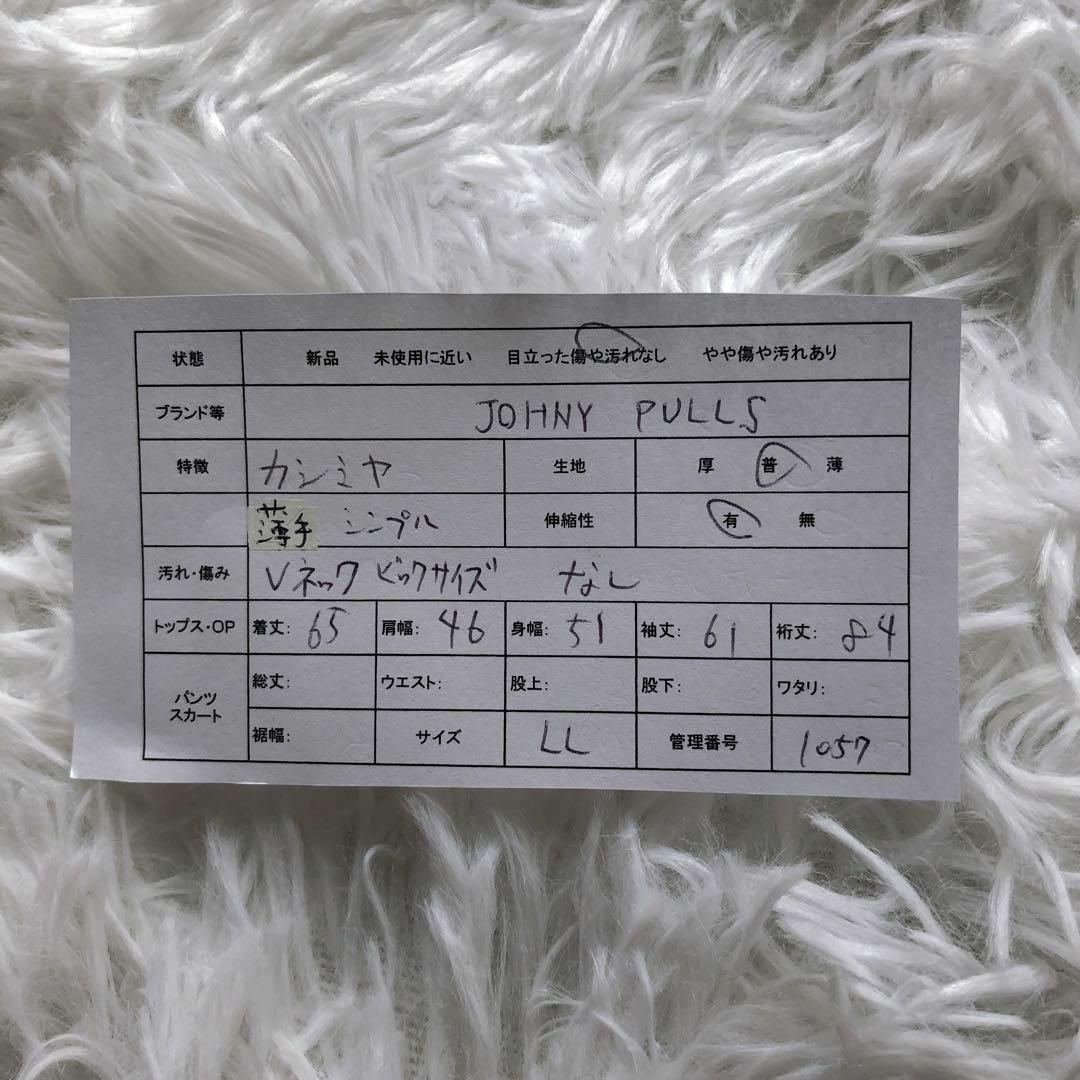 状態 新品 未使用に近い 目立った傷や汚れなし やや傷や汚れあり
ブランド等 JOHNY PULLS
特徴 カシミヤ 生地 厚 普 薄
薄手 シンプル 伸縮性 有 無
汚れ・傷み Vネック ビックサイズ なし
トップス・OP 着丈: 65 肩幅: 46 身幅: 51 袖丈: 61 裄丈: 84
パンツ スカート 総丈: ウエスト: 股上: 股下: ワタリ:
裾幅: サイズ LL 管理番号 1057